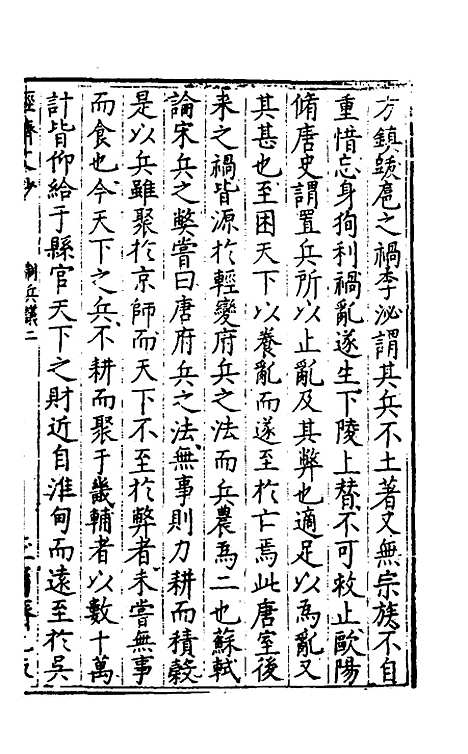 方鎮跋扈之禍李泌謂其兵不土著又無宗族不自
重惜忘身狥利禍亂遂生下陵上替不可救止歐陽
脩唐史謂置兵所以止亂及其弊也適足以爲亂又
其甚也至困天下以養亂而遂至於亡焉此唐室後
来之禍皆源於輕變府兵之法而兵農爲二也蘇軾
論宋兵之獘嘗曰唐府兵之法無事則力耕而積榖
是以兵雖聚於京師而天下不至於弊者未嘗無事
而食也今天下之兵不耕而聚于畿輔者以數十萬
計皆仰給于縣官天下之財近自淮甸而遠至於吳
經濟文抄
制兵議二